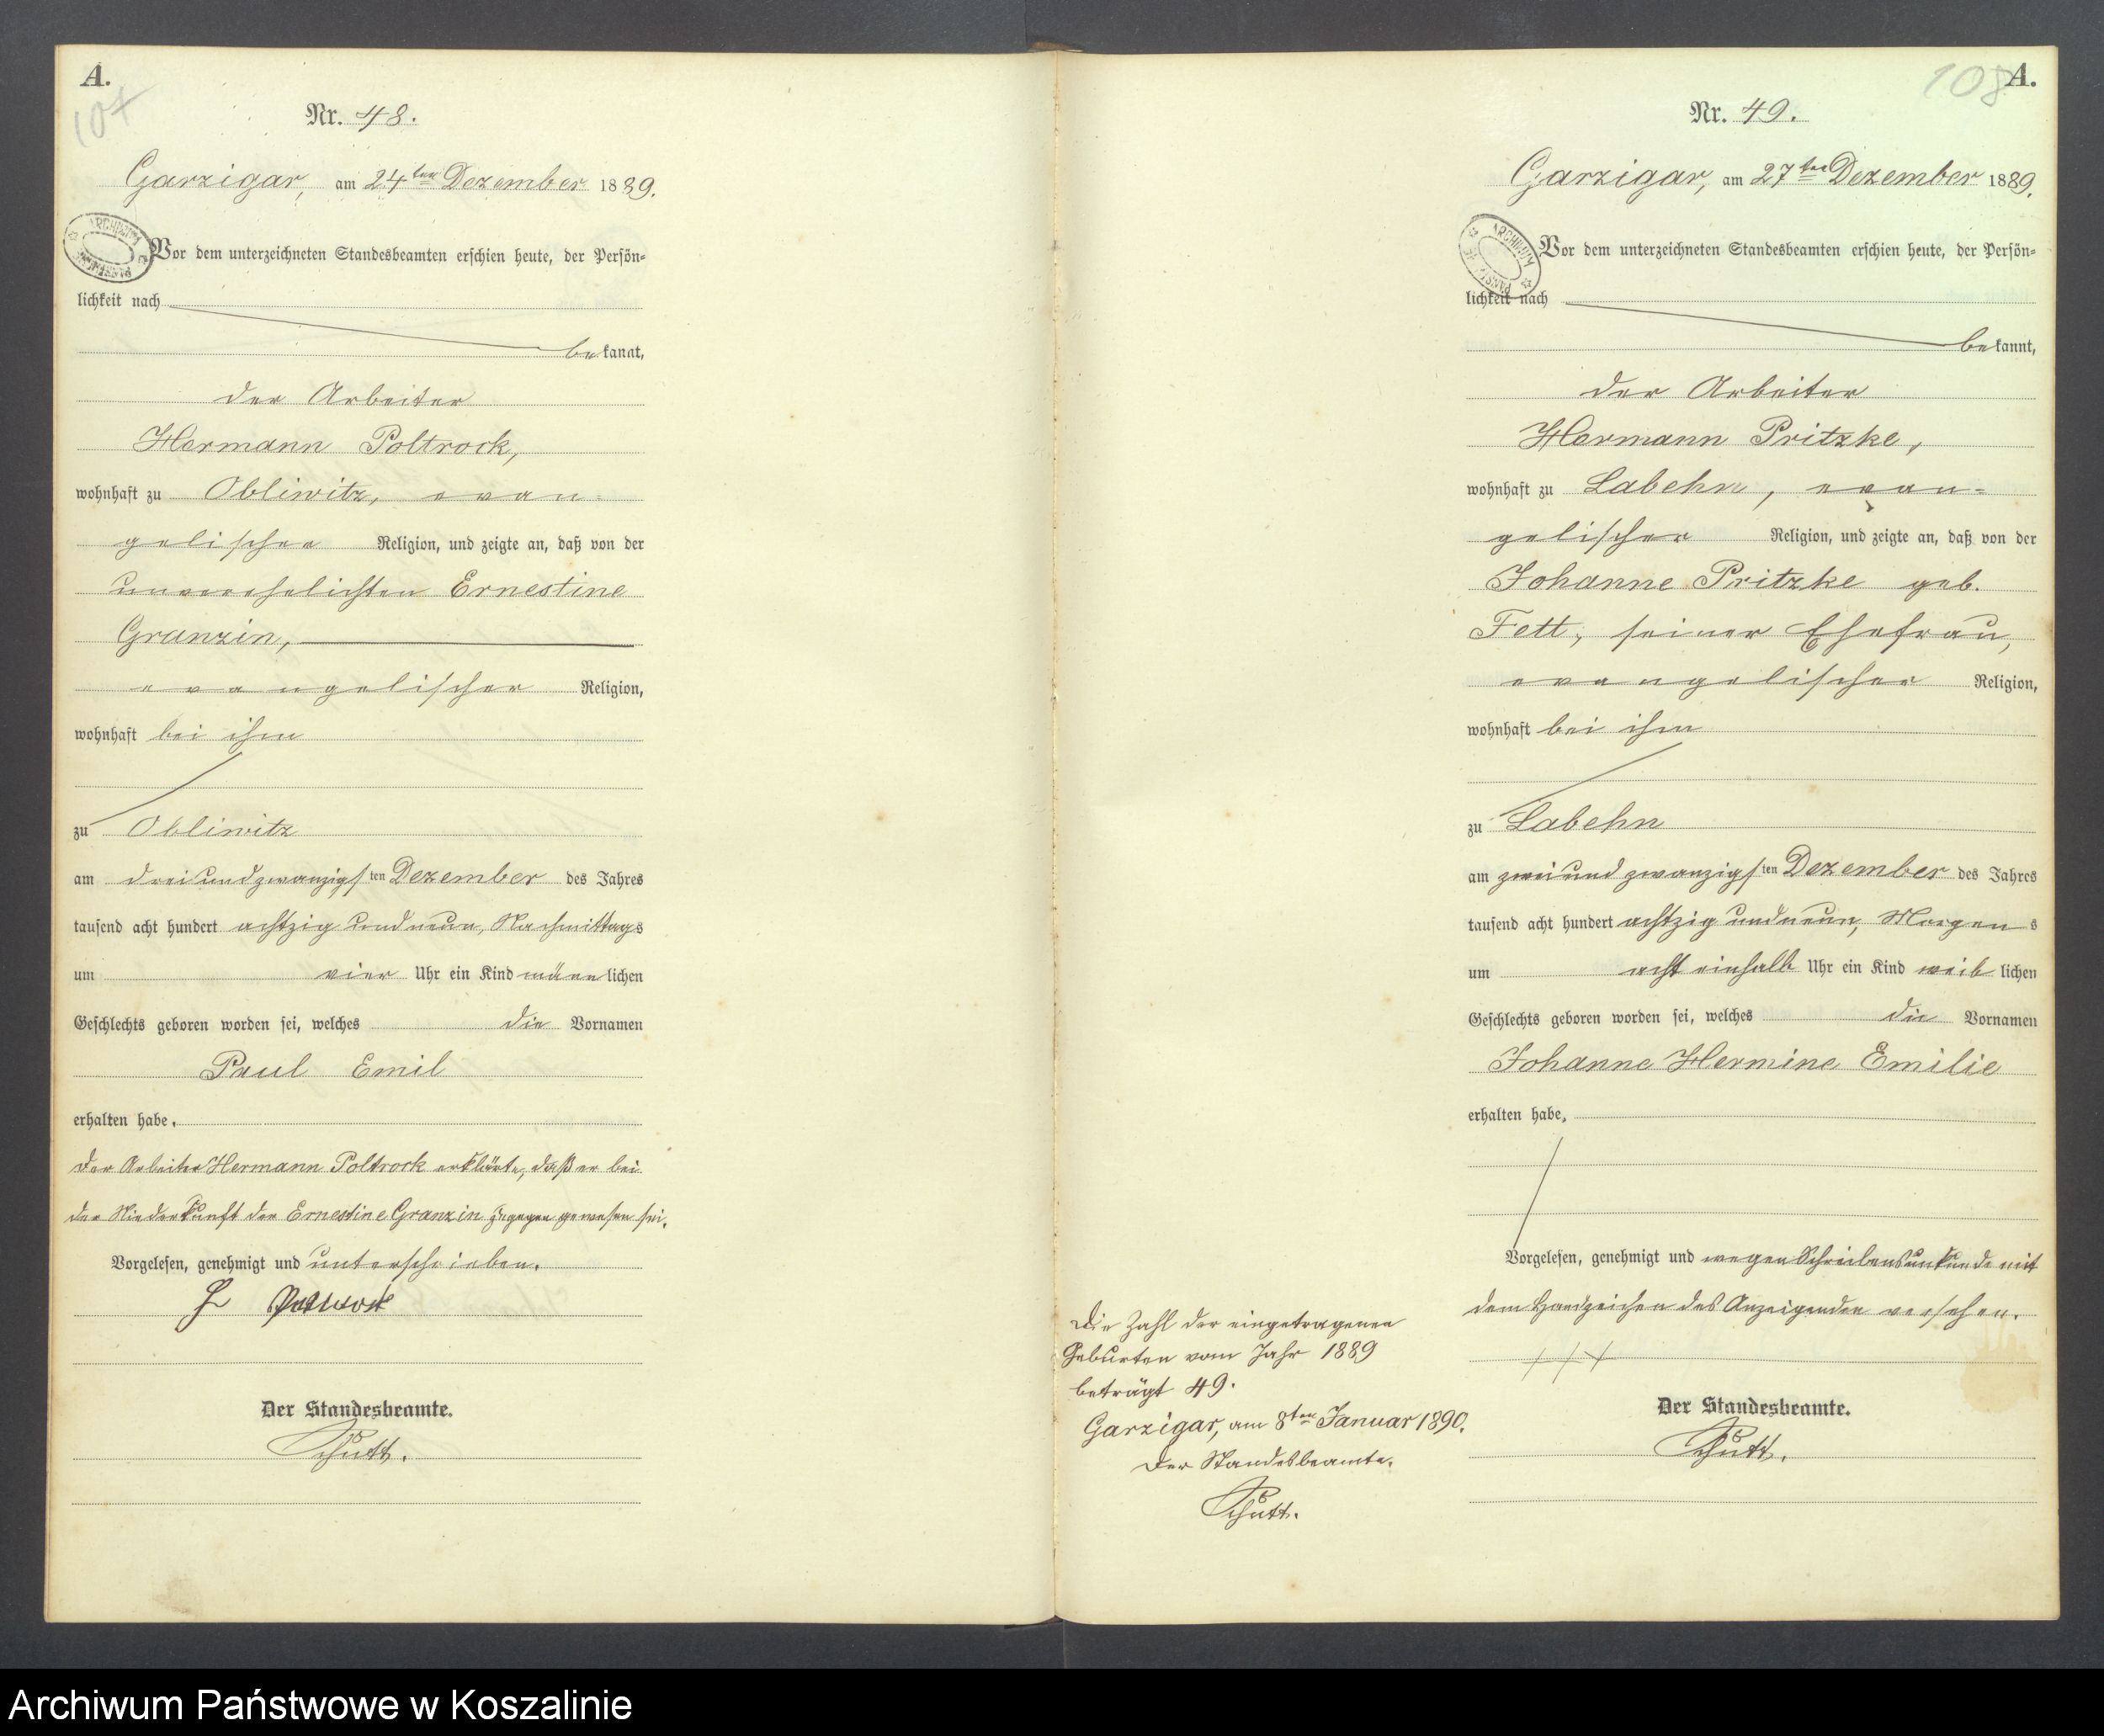 A.
107
Nr. 48.
Garzigar, am 24ten Dezember 1889.
Vor dem unterzeichneten Standesbeamten erschien heute, der Persön-
lichkeit nach
bekannt,
der Arbeiter
Hermann Poltrock,
wohnhaft zu Obliwitz, evan-
gelischer Religion, und zeigte an, daß von der
unverehelichten Ernestine
Granzin,
evangelischer Religion,
wohnhaft bei ihm
zu Obliwitz
am dreiundzwanzigsten Dezember des Jahres
tausend acht hundert achtzig und neun, Nachmittags
um vier Uhr ein Kind männlichen
Geschlechts geboren worden sei, welches die Vornamen
Paul Emil
erhalten habe.
Der Arbeiter Hermann Poltrock erklärte, daß er bei
der Niederkunft der Ernestine Granzin zugegen gewesen sei.
Vorgelesen, genehmigt und unterschrieben.
H Poltrock
Der Standesbeamte.
Schütt.
108
A.
Nr. 49.
Garzigar, am 27ten Dezember 1889.
Vor dem unterzeichneten Standesbeamten erschien heute, der Persön-
lichkeit nach
bekannt,
der Arbeiter
Hermann Pritzke,
wohnhaft zu Labehn, evan-
gelischer Religion, und zeigte an, daß von der
Johanne Pritzke geb.
Fett, seiner Ehefrau,
evangelischer Religion,
wohnhaft bei ihm
zu Labehn
am zwei und zwanzigsten Dezember des Jahres
tausend acht hundert achtzig und neun, Morgens
um acht einhalb Uhr ein Kind weiblichen
Geschlechts geboren worden sei, welches die Vornamen
Johanne Hermine Emilie
erhalten habe.
Vorgelesen, genehmigt und wegen Schreibensunkunde mit
dem Handzeichen des Anzeigenden versehen.
+++
Der Standesbeamte.
Schütt.
Die Zahl der eingetragenen
Geburten vom Jahr 1889
beträgt 49.
Garzigar, am 8ten Januar 1890.
Der Standesbeamte.
Schütt.
Archiwum Państwowe w Koszalinie